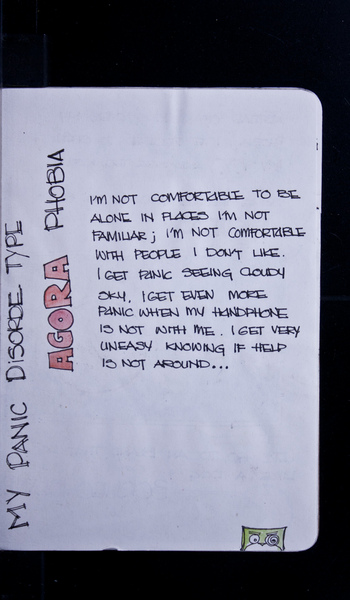 MY PANIC DISORDE TYPE
AGORA PHOBIA
I'M NOT COMFORTABLE TO BE
ALONE IN PLACES I'M NOT
FAMILIAR; I'M NOT COMFORTABLE
WITH PEOPLE I DON'T LIKE.
I GET PANIC SEEING CLOUDY
SKY. I GET EVEN MORE
PANIC WHEN MY HANDPHONE
IS NOT WITH ME. I GET VERY
UNEASY KNOWING IF HELP
IS NOT AROUND...